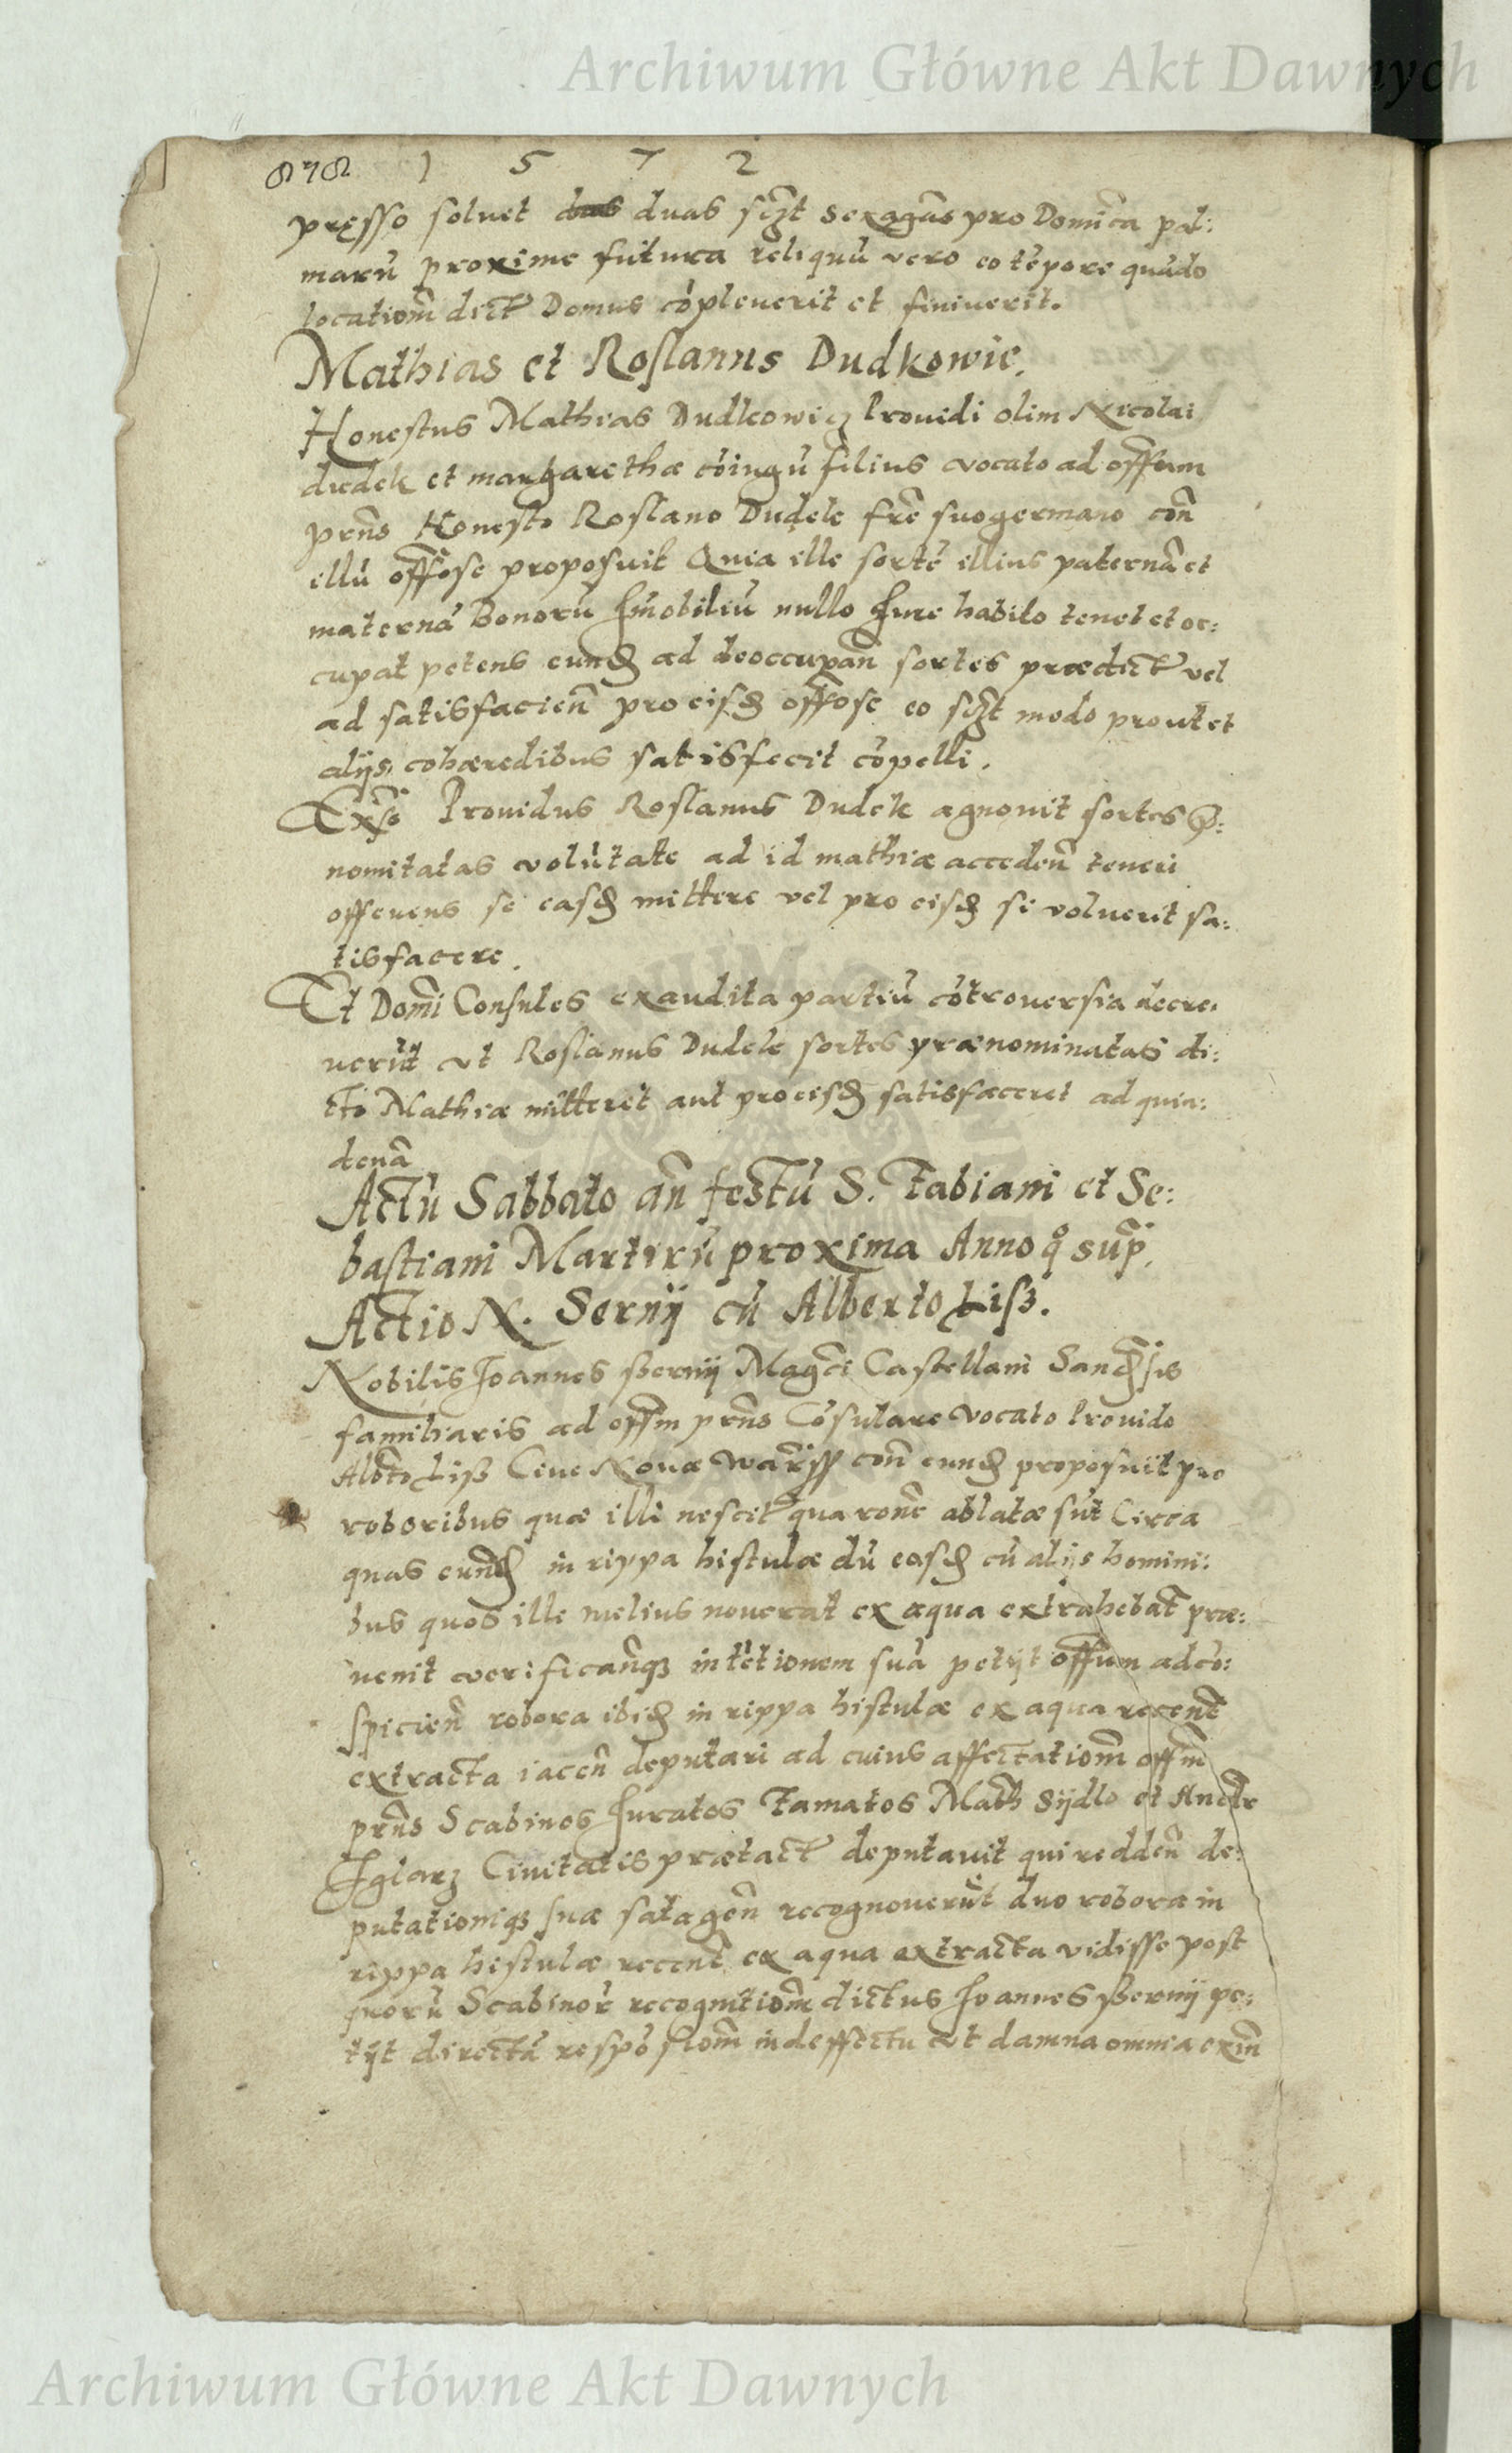 Archiwum Główne Akt Dawnych
878 1 5 7 2
pręsso soluet duas sczt sexagēs pro Domīca pal:
marū proxime futura reliquū vero eo tēpore quādo
locationē dict Domus cōpleuerit et finiuerit.
Mathias et Roslanus Dudkowic.
Honestus Mathias Dudkowicz Prouidi olim Nicolai
dudek et margarethæ cōiugū filius vocato ad offum
prns Honesto Roslano Dudek fre suo germano con
illū offose proposuit Quia ille sortē illius paternā et
maternā Bonorū Imobiliū nullo Iure habito tenet et oc:
cupat petens eund ad deoccupan sortes prædict vel
ad satisfacien pro eisd offose eo sczt modo prout et
alijs cohæredibus satisfecit cōpelli.
Exo Prouidus Roslanus Dudek agnouit sortes p:
nomitatas volūtate ad id mathiæ acceden teneri
offerens se easd mittere vel pro eisd si voluerit sa:
tisfacere.
Et Domi Consules exaudita partiū cōtrouersia decre:
uerūt vt Roslanus Dudek sortes prænominatas di:
cto Mathiæ mitteret aut pro eisd satisfaceret ad quin:
denā
Actū Sabbato an festū S. Fabiani et Se:
bastiani Martirū proxima Anno qo sup.
Actio N. Sernij cū Alberto Lisz.
Nobilis Joannes Sernij Magci Castellani
familiaris ad offm prns Cōsulare vocato Prouido
Albto Lisz Ciue Nouæ Warss con eund proposuit pro
roboribus quæ illi nescit qua rone ablatæ sūt Circa
quas eund in rippa histulæ dū easd cū alijs homini:
bus quos ille melius nouerat ex aqua extrahebat præ:
uenit verificanq intētionem suā petijt offum ad cō:
spicien robora ibid in rippa histulæ ex aqua recent
extracta iacen deputari ad cuius affectationē offm
prns Scabinos Iuratos Famatos Math Sydlo et Andr
Iglarz Ciuitatis prætact deputauit qui redden de:
putationiq suæ satagen recognouerūt duo robora in
rippa histulæ recent ex aqua extracta vidisse post
quorū Scabinor recognitionē dictus Joannes Sernij pe:
tijt directā respōsionē in deffectu vt damna omnia exin
Archiwum Główne Akt Dawnych